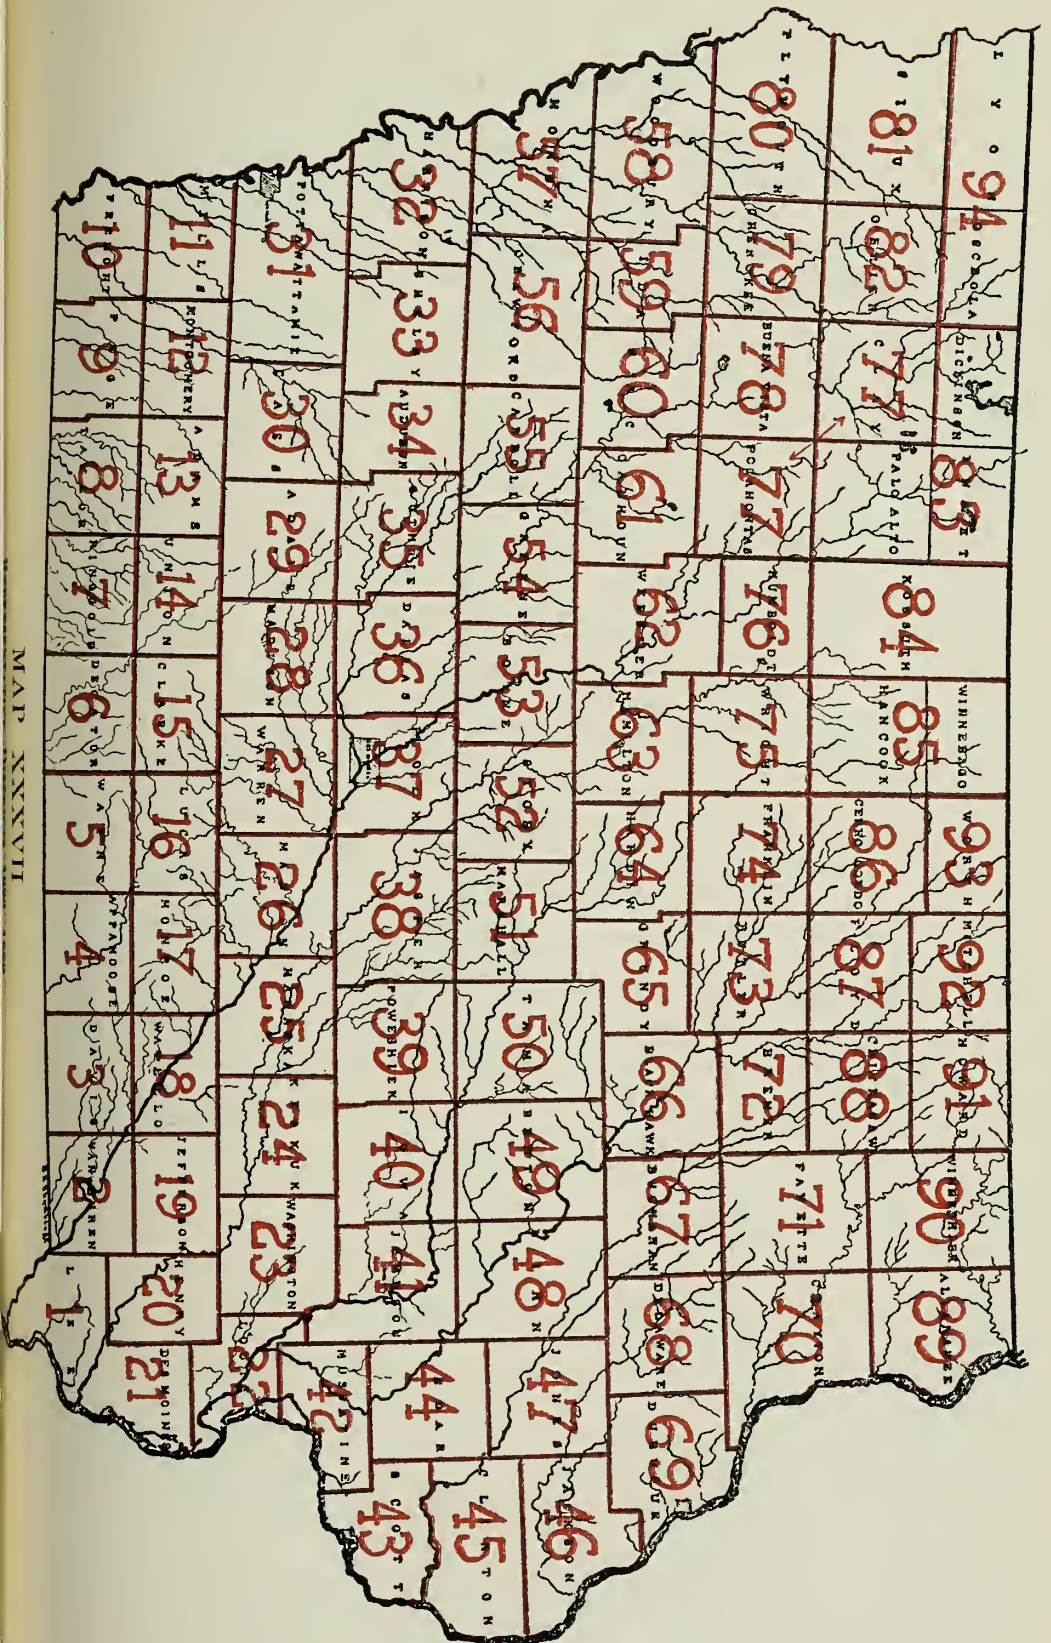 LYON
94
OSCEOLA
DICKINSON
EMMET
83
WINNEBAGO
WORTH
93
MITCHELL
92
HOWARD
91
WINNESHIEK
90
ALLAMAKEE
89
SIOUX
81
O'BRIEN
82
CLAY
77
PALO ALTO
KOSSUTH
84
HANCOCK
85
CERRO GORDO
86
FLOYD
87
CHICKASAW
88
PLYMOUTH
80
CHEROKEE
79
BUENA VISTA
78
POCAHONTAS
77
HUMBOLDT
76
WRIGHT
75
FRANKLIN
74
BUTLER
73
BREMER
72
FAYETTE
71
CLAYTON
70
WOODBURY
58
IDA
59
SAC
60
CALHOUN
61
WEBSTER
62
HAMILTON
63
HARDIN
64
GRUNDY
65
BLACKHAWK
66
BUCHANAN
67
DELAWARE
68
DUBUQUE
69
MONONA
57
CRAWFORD
56
CARROLL
55
GREENE
54
BOONE
53
STORY
52
MARSHALL
51
TAMA
50
BENTON
49
LINN
48
JONES
47
JACKSON
46
HARRISON
32
SHELBY
33
AUDUBON
34
GUTHRIE
35
DALLAS
36
POLK
37
JASPER
38
POWESHIEK
39
IOWA
40
JOHNSON
41
CEDAR
44
CLINTON
45
SCOTT
43
POTTAWATTAMIE
31
CASS
30
ADAIR
29
MADISON
28
WARREN
27
MARION
26
MAHASKA
25
KEOKUK
24
WASHINGTON
23
LOUISA
22
MUSCATINE
42
MILLS
11
MONTGOMERY
12
ADAMS
13
UNION
14
CLARKE
15
LUCAS
16
MONROE
17
WAPELLO
18
JEFFERSON
19
HENRY
20
DES MOINES
21
FREMONT
10
PAGE
9
TAYLOR
8
RINGGOLD
7
DECATUR
6
WAYNE
5
APPANOOSE
4
DAVIS
3
VAN BUREN
2
LEE
1
MAP XXXVII